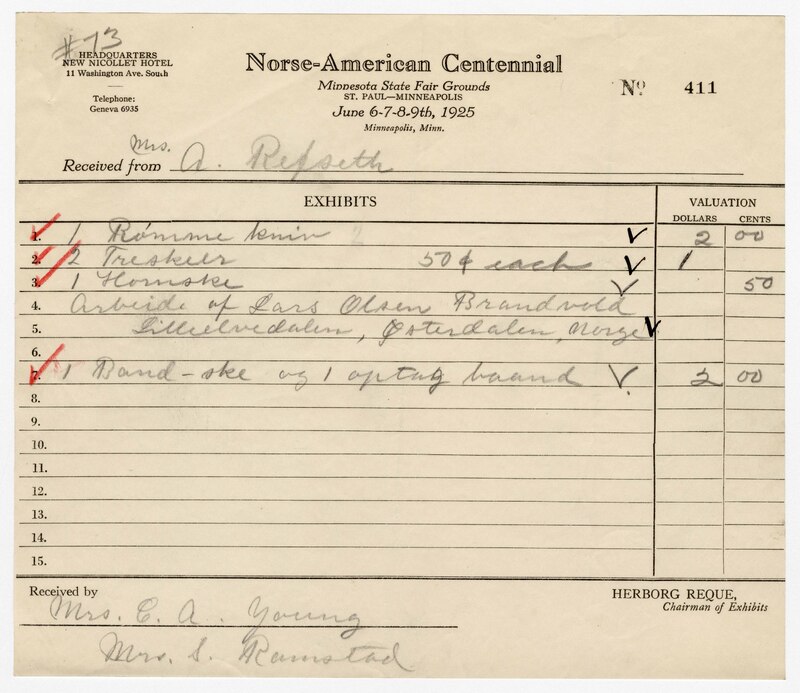 #73
HEADQUARTERS
NEW NICOLLET HOTEL
11 Washington Ave. South
Telephone:
Geneva 6935
Norse-American Centennial
Minnesota State Fair Grounds
ST. PAUL—MINNEAPOLIS
June 6-7-8-9th, 1925
Minneapolis, Minn.
No 411
Received from Mrs. A. Refseth
EXHIBITS VALUATION
DOLLARS CENTS
1. 1 Rømme kniv 2 00
2. 2 Treskeer 50¢ each 1
3. 1 Hornske 50
4. Arbeide of Lars Olsen Brandvold
5. Lillielvedalen, Østerdalen, Norge
6.
7. 1 Band-ske og 1 optag baand 2 00
8.
9.
10.
11.
12.
13.
14.
15.
Received by
Mrs. C. A. Young
Mrs. S. Ramstad
HERBORG REQUE,
Chairman of Exhibits